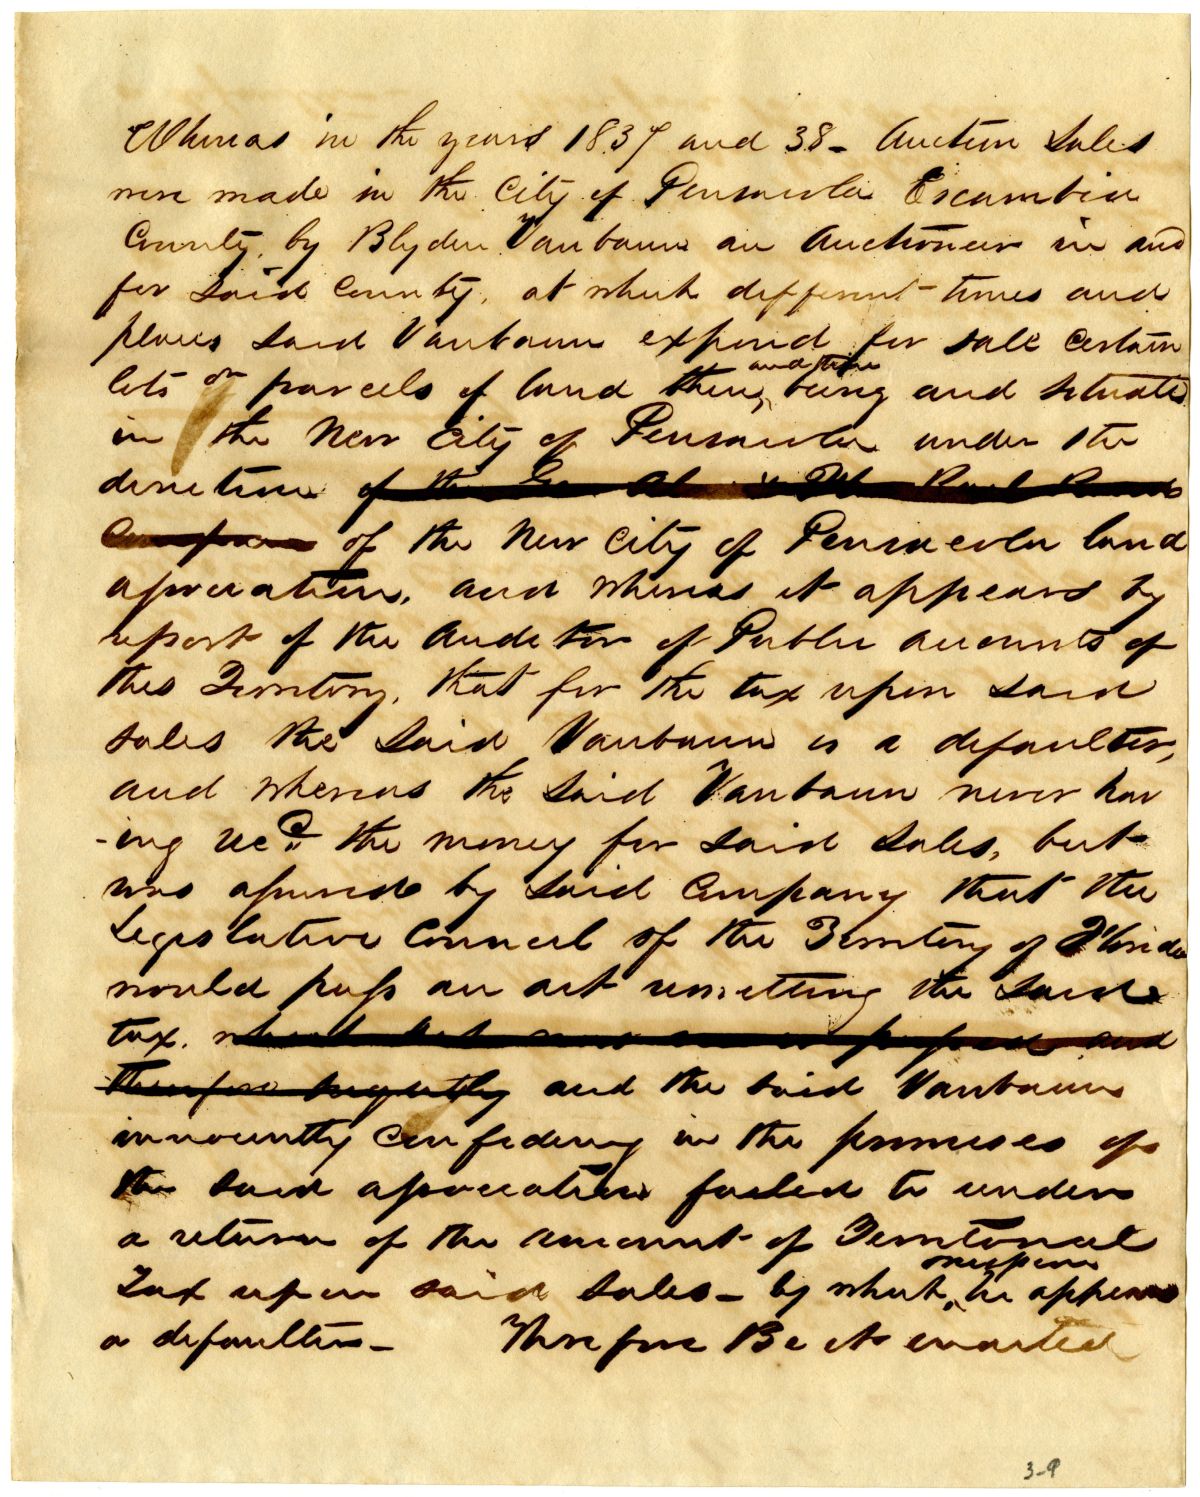 Whereas in the years 1837 and 38 - Auction Sales
were made in the City of Pensacola Escambia
County, by Blyden Vanbaun an Auctioneer in and
for said County, at which different times and
places said Vanbaun exposed for sale certain
lots or parcels of land then, and there being and situate
in the New City of Pensacola under the
direction of the
of the New City of Pensacola land
association, and whereas it appears by
report of the Auditor of Public accounts of
this Territory, that for the tax upon said
sales the said Vanbaun is a defaulter,
and whereas the said Vanbaun never hav
-ing recd. the money for said sales, but
was assured by said Company that the
Legislative Council of the Territory of Florida
would pass an act remitting the said
tax. and
therefore and the said Vanbaun
innocently confiding in the promises of
the said association failed to render
a return of the amount of Territorial
Tax upon said sales - by which, he appears
a defaulter - Therefore Be it enacted
3-9